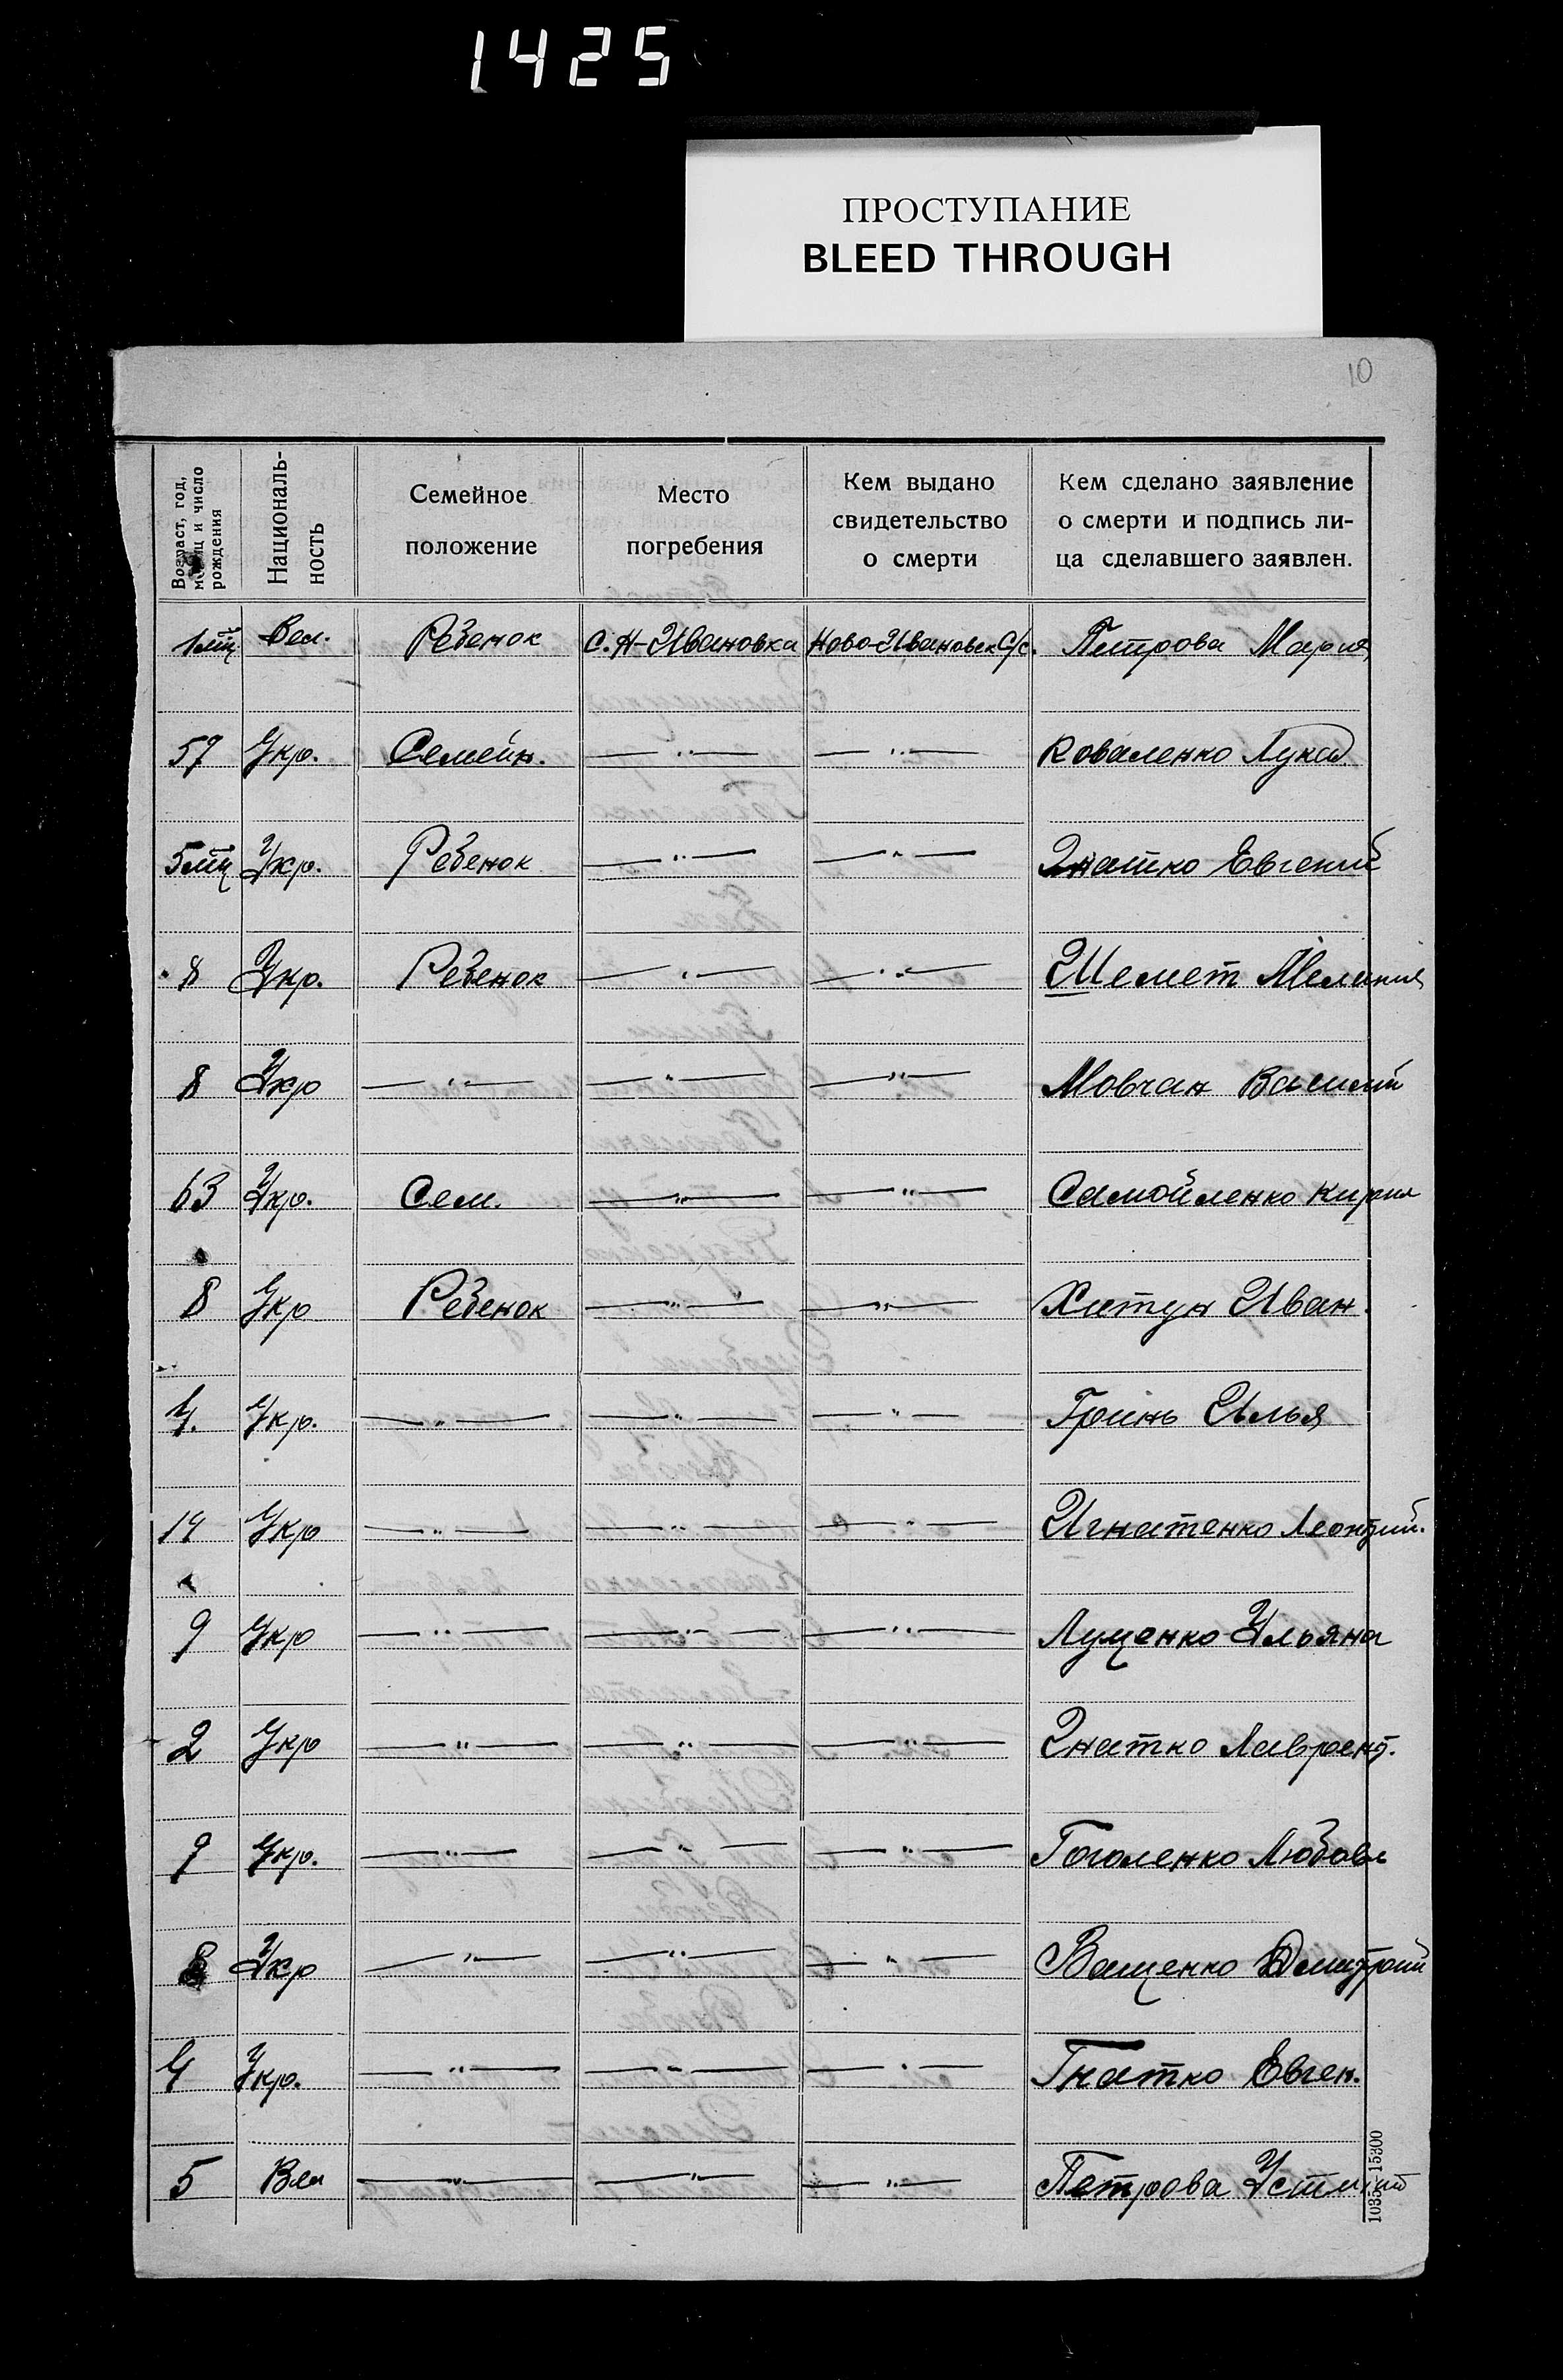 1425
ПРОСТУПАНИЕ
BLEED THROUGH
10
Возраст, год, месяц и число рождения
Националь-ность
Семейное положение
Место погребения
Кем выдано свидетельство о смерти
Кем сделано заявление о смерти и подпись ли-ца сделавшего заявлен.
1 мц Вел. Ребенок С. Н-Ивановка Ново-Ивановск С/с. Петрова Мария
57 Укр. Семейн. —"— —"— Коваленко Лука
5 мц Укр. Ребенок —"— —"— Гнатко Евгений
8 Укр. Ребенок —"— —"— Шемет Мелания
8 Укр —"— —"— —"— Мовчан Василий
63 Укр. Сем. —"— —"— Самойленко Кирил
8 Укр Ребенок —"— —"— Хитун Иван.
4. Укр. —"— —"— —"— Грінь Илья
14 Укр —"— —"— —"— Игнатенко Леонтий.
9 Укр —"— —"— —"— Луценко Ульяна
2 Укр —"— —"— —"— Гнатко Лаврент.
9 Укр. —"— —"— —"— Гоголенко Любовь
8 Укр —"— —"— —"— Ващенко Дмитрий
4 Укр. —"— —"— —"— Гнатко Евген.
5 Вел —"— —"— —"— Петрова Устиния
1035—15300